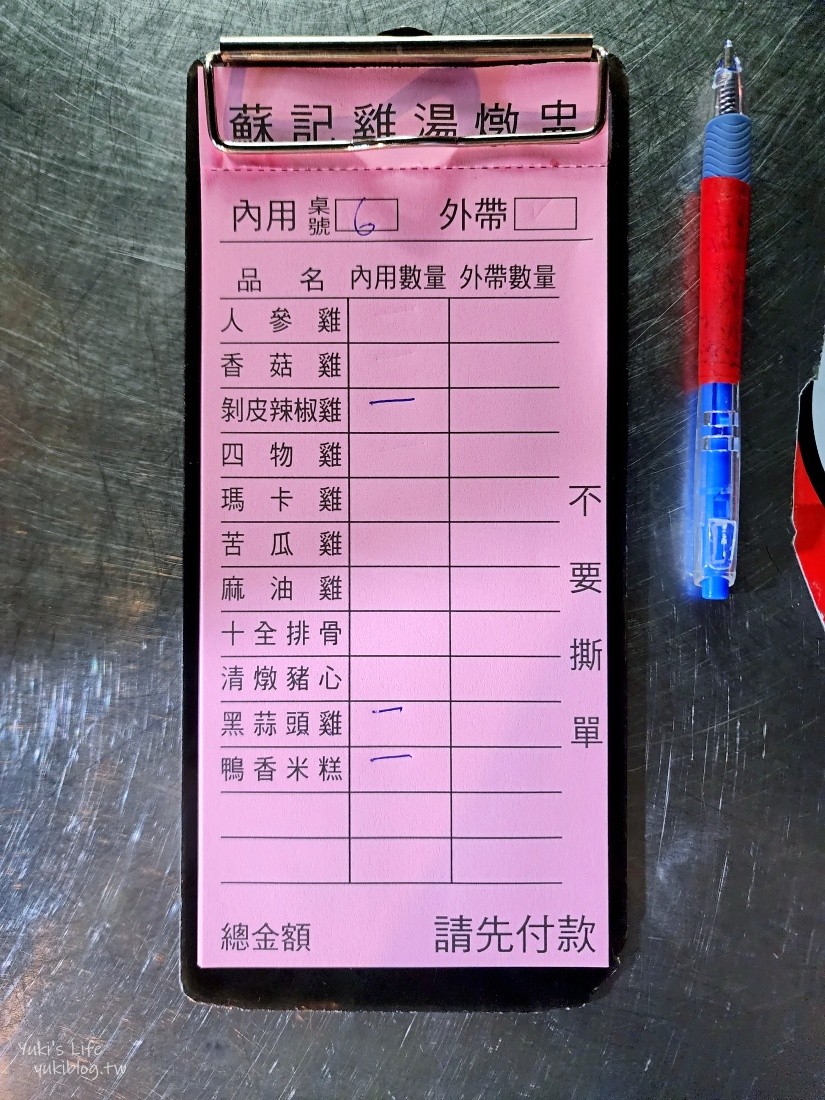 蘇記雞湯燉盅
內用 桌號 6 外帶
品名 內用數量 外帶數量
人參雞
香菇雞
剝皮辣椒雞 一
四物雞
瑪卡雞
苦瓜雞
麻油雞
十全排骨
清燉豬心
黑蒜頭雞 一
鴨香米糕 一
不要撕單
總金額 請先付款
Yuki's Life
yukiblog.tw